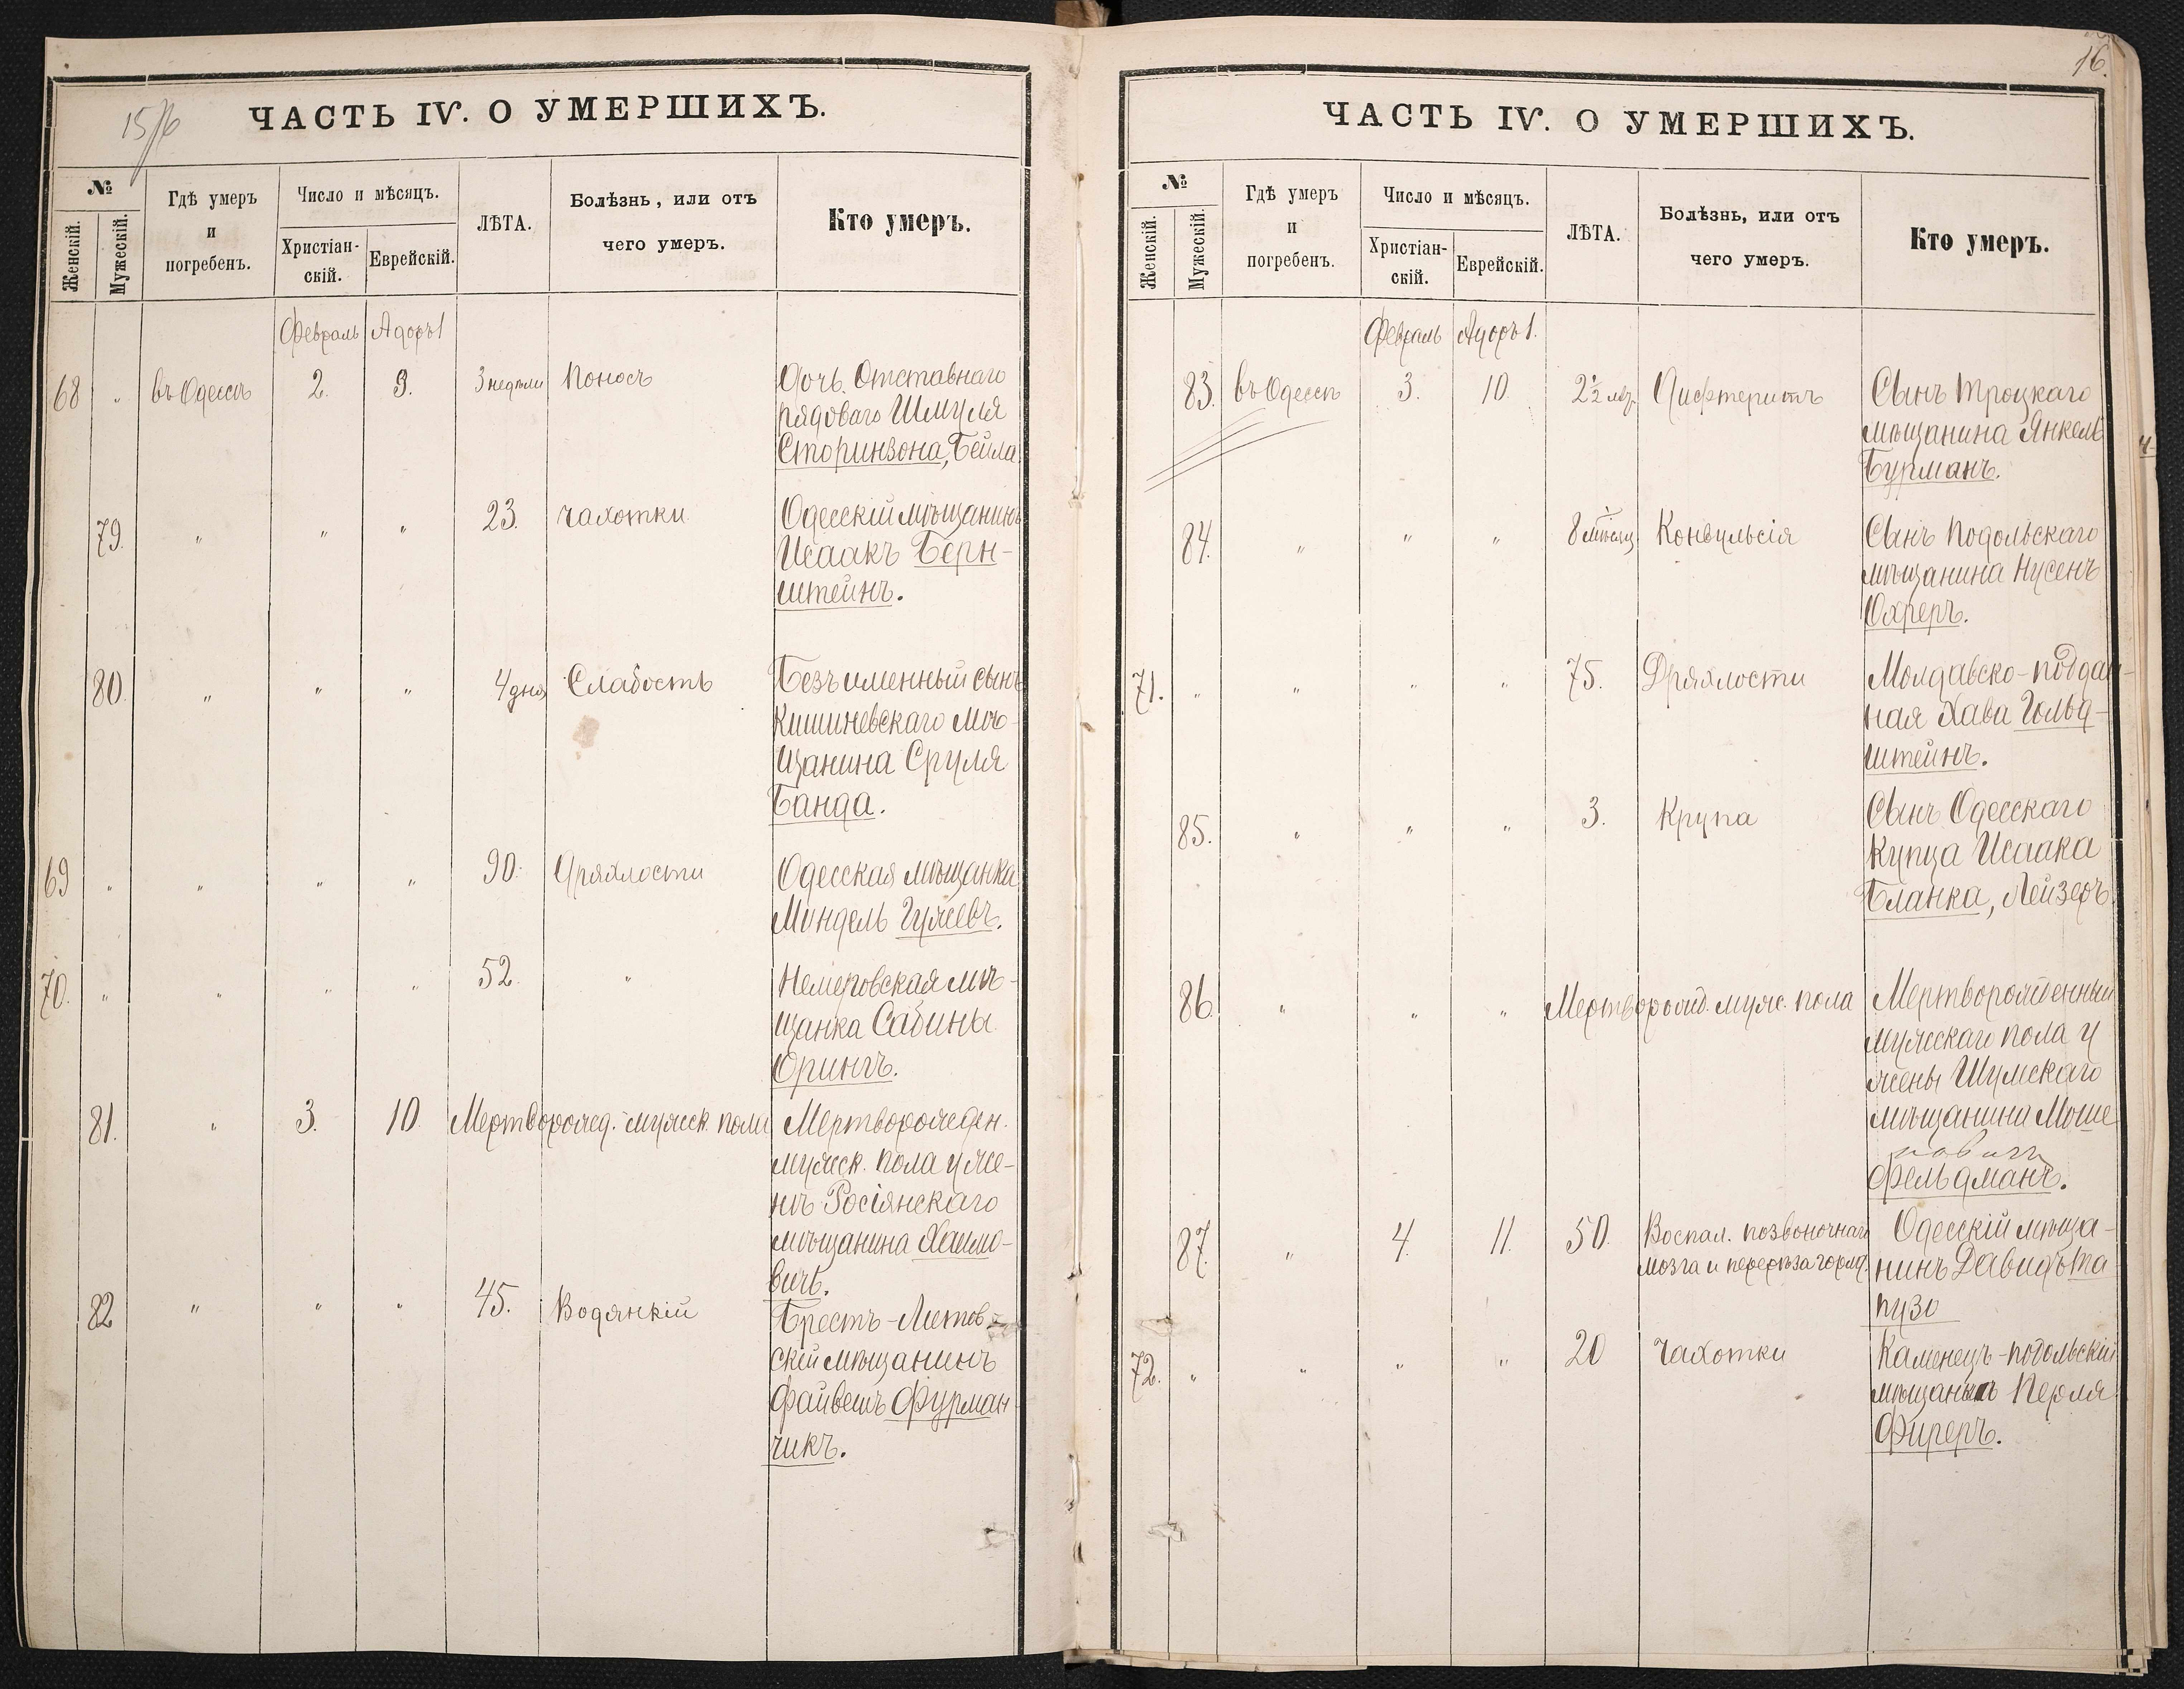 15/16
ЧАСТЬ IV. О УМЕРШИХЪ.
№
Женскій.
Мужескій.
Гдѣ умеръ
и
погребенъ.
Число и мѣсяцъ.
Христіан-
скій.
Еврейскій.
ЛѢТА.
Болѣзнь, или отъ
чего умеръ.
Кто умеръ.
Февраль Адоръ 1
68 " въ Одессѣ 2. 9. 3 недѣли Поносъ Дочь Отставнаго
рядоваго Шмуля
Сторинзона, Бейла
79. " " " 23. чахотки Одесскій мѣщанинъ
Исаакъ Берн-
штейнъ.
80. " " " 4 дня Слабость Безъименный сынъ
Кишиневскаго мѣ-
щанина Сруля
Банда.
69 " " " " 90. Дряхлости Одесская мѣщанка
Миндель Гуляевъ.
70. " " " " 52. " Немеровская мѣ-
щанка Сабины
Орингъ.
81. " 3. 10. Мертворожд. мужеск. пола Мертворожден.
мужеск. пола у же-
нѣ Росіянскаго
мѣщанина Хаимо-
вичъ.
82 " " " 45. Водянкій Брестъ-Литов-
скій мѣщанинъ
Файвешъ Фурман-
чикъ.
16.
ЧАСТЬ IV. О УМЕРШИХЪ.
№
Женскій.
Мужескій.
Гдѣ умеръ
и
погребенъ.
Число и мѣсяцъ.
Христіан-
скій.
Еврейскій.
ЛѢТА.
Болѣзнь, или отъ
чего умеръ.
Кто умеръ.
Февраль Адоръ 1.
83. въ Одессѣ 3. 10. 2½ лѣт. Дифтеритъ Сынъ Троцкаго
мѣщанина Янкель
Бурманъ.
84. " " " 8 мѣсяц. Конвульсія Сынъ Подольскаго
мѣщанина Нусенъ
Охреръ.
71. " " " " 75. Дряхлости Молдавско-поддан-
ная Хава Гольд-
штейнъ.
85. " " " 3. Крупа Сынъ Одесскаго
Купца Исаака
Бланка, Лейзеръ
86. " " " Мертворожд. муж. пола Мертворожденный
мужескаго пола у
жены Шумскаго
мѣщанина Моше
Фельдманъ.
87. " 4. 11. 50. Воспал. позвоночнаго Одесскій мѣща-
мозга и перерѣза горла. нинъ Давидъ Та
пузо
72. " " " " 20 Чахотки Каменецъ-подольскій
мѣщанинъ Перля
Фиреръ.